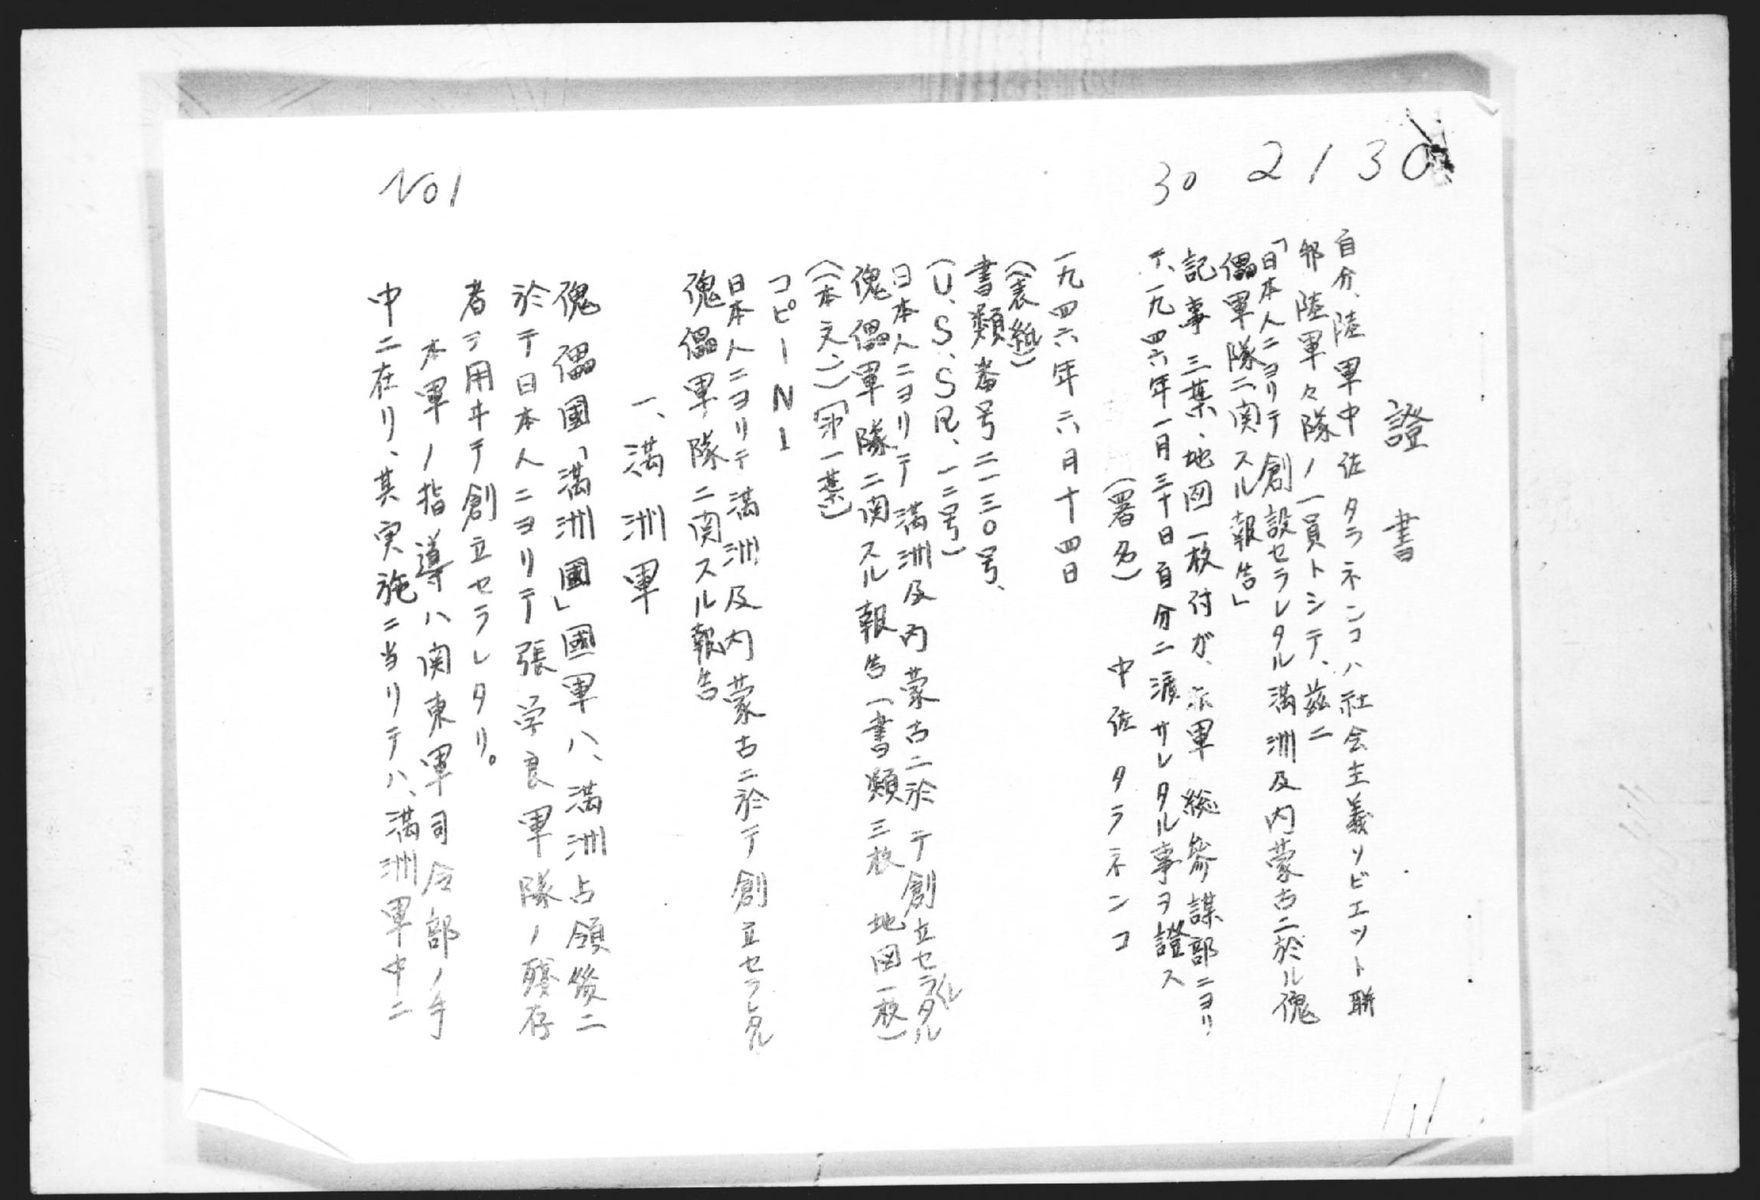 2130
30
No1
證書
自分、陸軍中佐タラネンコハ社会主義ソビエット聯
邦陸軍々隊ノ一員トシテ、茲ニ
「日本人ニヨリテ創設セラレタル満洲及内蒙古ニ於ル傀
儡軍隊ニ関スル報告」
記事三葉、地図一枚付ガ、赤軍総参謀部ニヨリ
テ、一九四六年一月三十日自分ニ渡サレタル事ヲ證ス
(署名) 中佐タラネンコ
一九四六年六月十四日
(表紙)
書類番号二一三〇号、
(U、S、S、R、一二号)
日本人ニヨリテ満洲及内蒙古ニ於テ創立セラレタル
傀儡軍隊ニ関スル報告(書類三枚地図一枚)
(本文、)(第一葉)
コピーN1
日本人ニヨリテ満洲及内蒙古ニ於テ創立セラレタル
傀儡軍隊ニ関スル報告
一、満洲軍
傀儡國「満洲國」國軍ハ、満洲占領後ニ
於テ日本人ニヨリテ張学良軍隊ノ残存
者ヲ用ヰテ創立セラレタリ。
本軍ノ指導ハ関東軍司令部ノ手
中ニ在リ、其実施ニ当リテハ、満洲軍中ニ